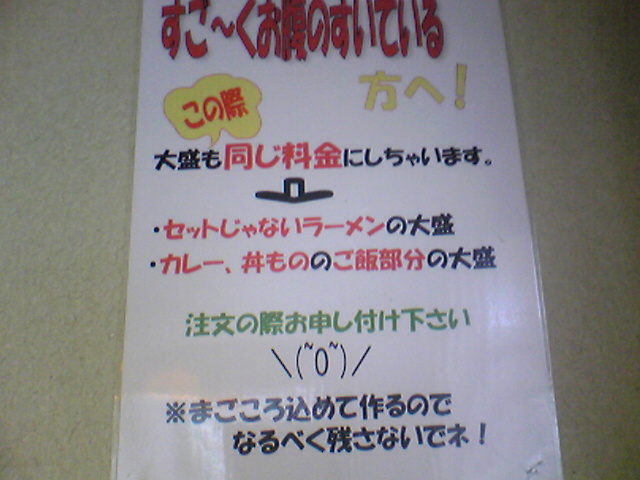 すご～くお腹のすいている
方へ！
この際
大盛も同じ料金にしちゃいます。
・セットじゃないラーメンの大盛
・カレー、丼もののご飯部分の大盛
注文の際お申し付け下さい
＼(~O~)／
※まごころ込めて作るので
なるべく残さないでネ！